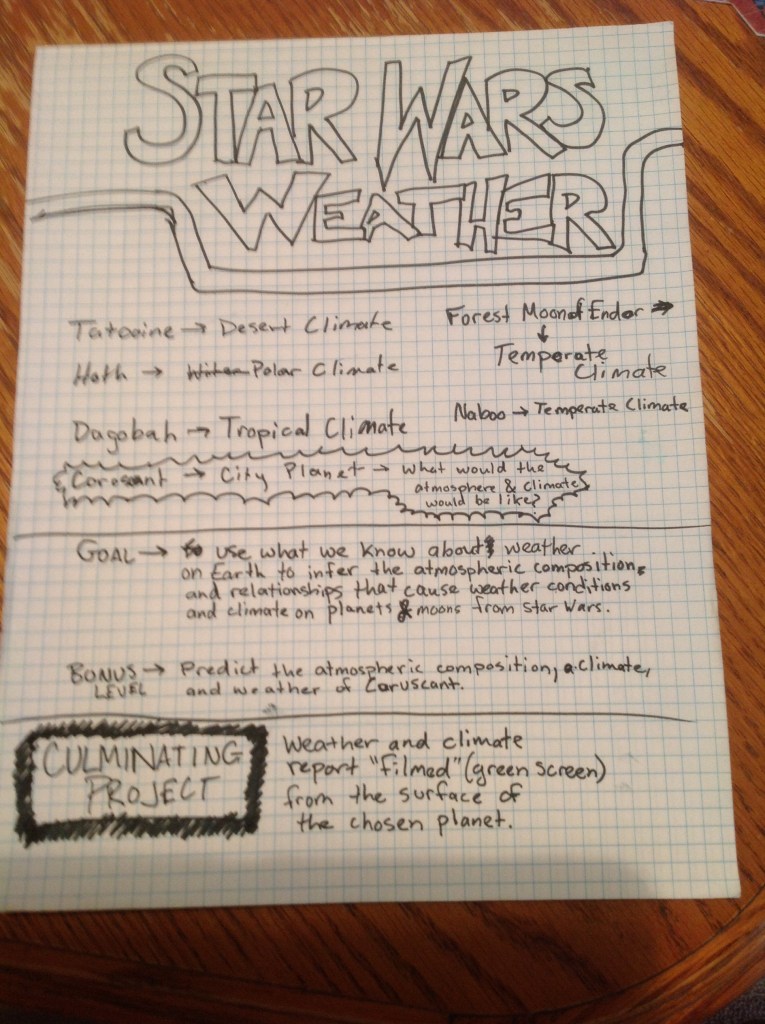 STAR WARS
WEATHER
Tatooine → Desert Climate
Hoth → Polar Climate
Dagobah → Tropical Climate
Forest Moon of Endor →
↓
Temperate
Climate
Naboo → Temperate Climate
Corescant → City Planet → What would the
atmosphere & climate
would be like?
GOAL → to use what we know about weather
on Earth to infer the atmospheric composition,
and relationships that cause weather conditions
and climate on planets & moons from Star Wars.
BONUS → Predict the atmospheric composition, climate,
LEVEL and weather of Coruscant.
CULMINATING
PROJECT
Weather and climate
report "filmed" (green screen)
from the surface of
the chosen planet.